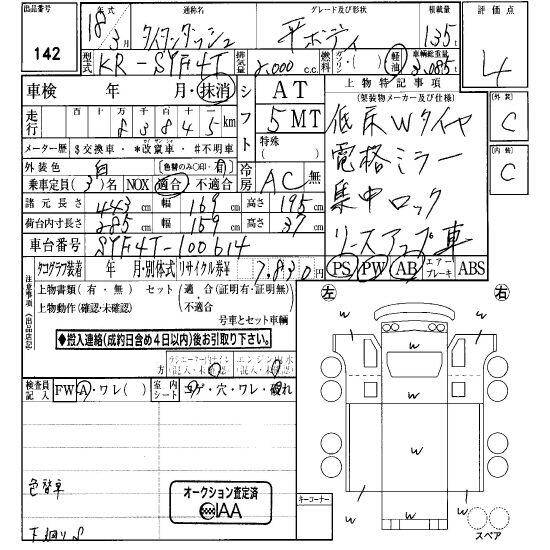 出品番号 年式 通称名 グレード及び形状 積載量 評価点
142 18年3月 タイタンダッシュ 平ボディ 1.35t 4
型式 KR-SYF4T 排気量 2,000c.c. 燃料 ガソリン・( ) 軽油 車輌総重量 3,085t
車検 年 月・抹消 シフト AT 上物特記事項
十万千百十 5MT (架装物メーカー及び仕様) (外装) C
走行 83845km 低床Wタイヤ
メーター歴 $交換車・*改竄車・#不明車 特殊( ) 電格ミラー
外装色 白 (色替のみ○印・有) 冷房 AC 無 集中ロック (内装) C
乗車定員(3)名 NOX 適合 不適合 リースアップ車
諸元長さ 443cm 幅 169cm 高さ 195cm
荷台内寸長さ 285cm 幅 159cm 高さ 37cm
車台番号 SYF4T-100614 PS PW AB エアーブレーキ ABS
タコグラフ装着 年 月・別体式 リサイクル券¥ 7,830円
注意事項(出品店記)
上物書類(有・無) セット(適合(証明有・証明無)・不適合)
上物動作(確認・未確認) 号車とセット車輌
◆搬入連絡(成約日含め4日以内)後お引取り下さい。
左 右
検査員記入 FW A・ワレ( ) 室内シート コゲ・穴・ワレ・破れ
w w
w w
w w w
w w
色替車
下廻りS
オークション査定済
CIAA
キーコーナー
スペア